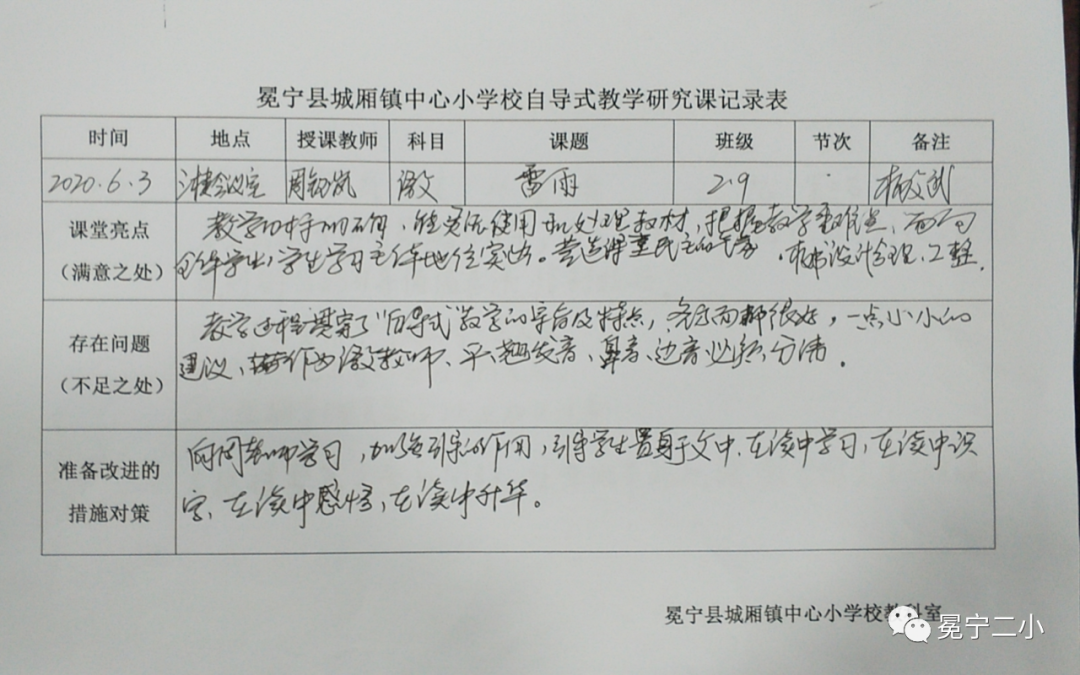 冕宁县城厢镇中心小学校自导式教学研究课记录表
时间 地点 授课教师 科目 课题 班级 节次 备注
2020.6.3 会议室 周 语文 雷雨 2.9
课堂亮点
(满意之处)
教学目标明确,能灵活使用和处理教材,把握教学重难点,面向
全体学生,学生学习主体地位突出。营造课堂民主的气氛,板书设计合理、工整.
存在问题
(不足之处)
教学过程贯穿了"自导式"教学的宗旨及特点,各方面都很好,一点小小的
建议、作为语文教师、平、翘发音、鼻音、边音必须分清.
准备改进的
措施对策
向周老师学习,加强引导的作用,引导学生置身于文中、在读中学习,在读中识
字、在读中感悟、在读中升华。
冕宁县城厢镇中心小学校教科室
冕宁二小